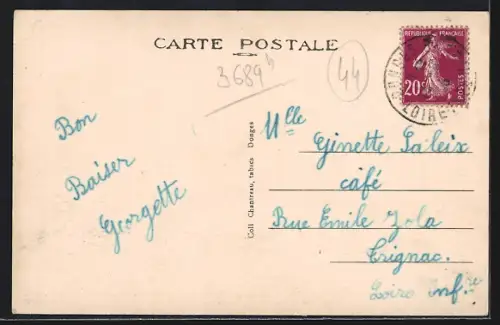 CARTE POSTALE
3689
44
REPUBLIQUE FRANCAISE
20c
POSTES
LOIRE
Bon
Baiser
Georgette
Coll. Chantreau, tabacs Donges
Mlle Ginette Paleix
café
Rue Emile Zola
Trignac.
Loire Infre